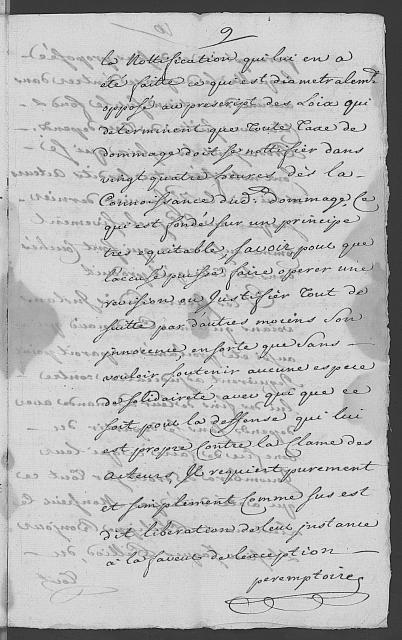 9
la Nottification qui lui en a
été faitte ce qui est diametralemt
opposé au prescript des Loix qui
determinent que Toute Taxe de
dommage doit se nottifier dans
vingt quatre heures dès la
Connoissance dud. dommage, Ce
qui est fondé sur un principe
tre equitable savoir pour que
laccusé puisse faire operer une
revision ou Justifier Tout de
suitte par dautres moiens son
jnnocence ensorte que sans
vouloir soutenir aucune espece
de solidaireté avec qui que ce
soit pour la deffense qui lui
est propre contre la Clame des
acteurs, Il requient purement
et simplement Comme sus est
dit liberation de leur jnstance
a la faveur de lexception
peremptoire